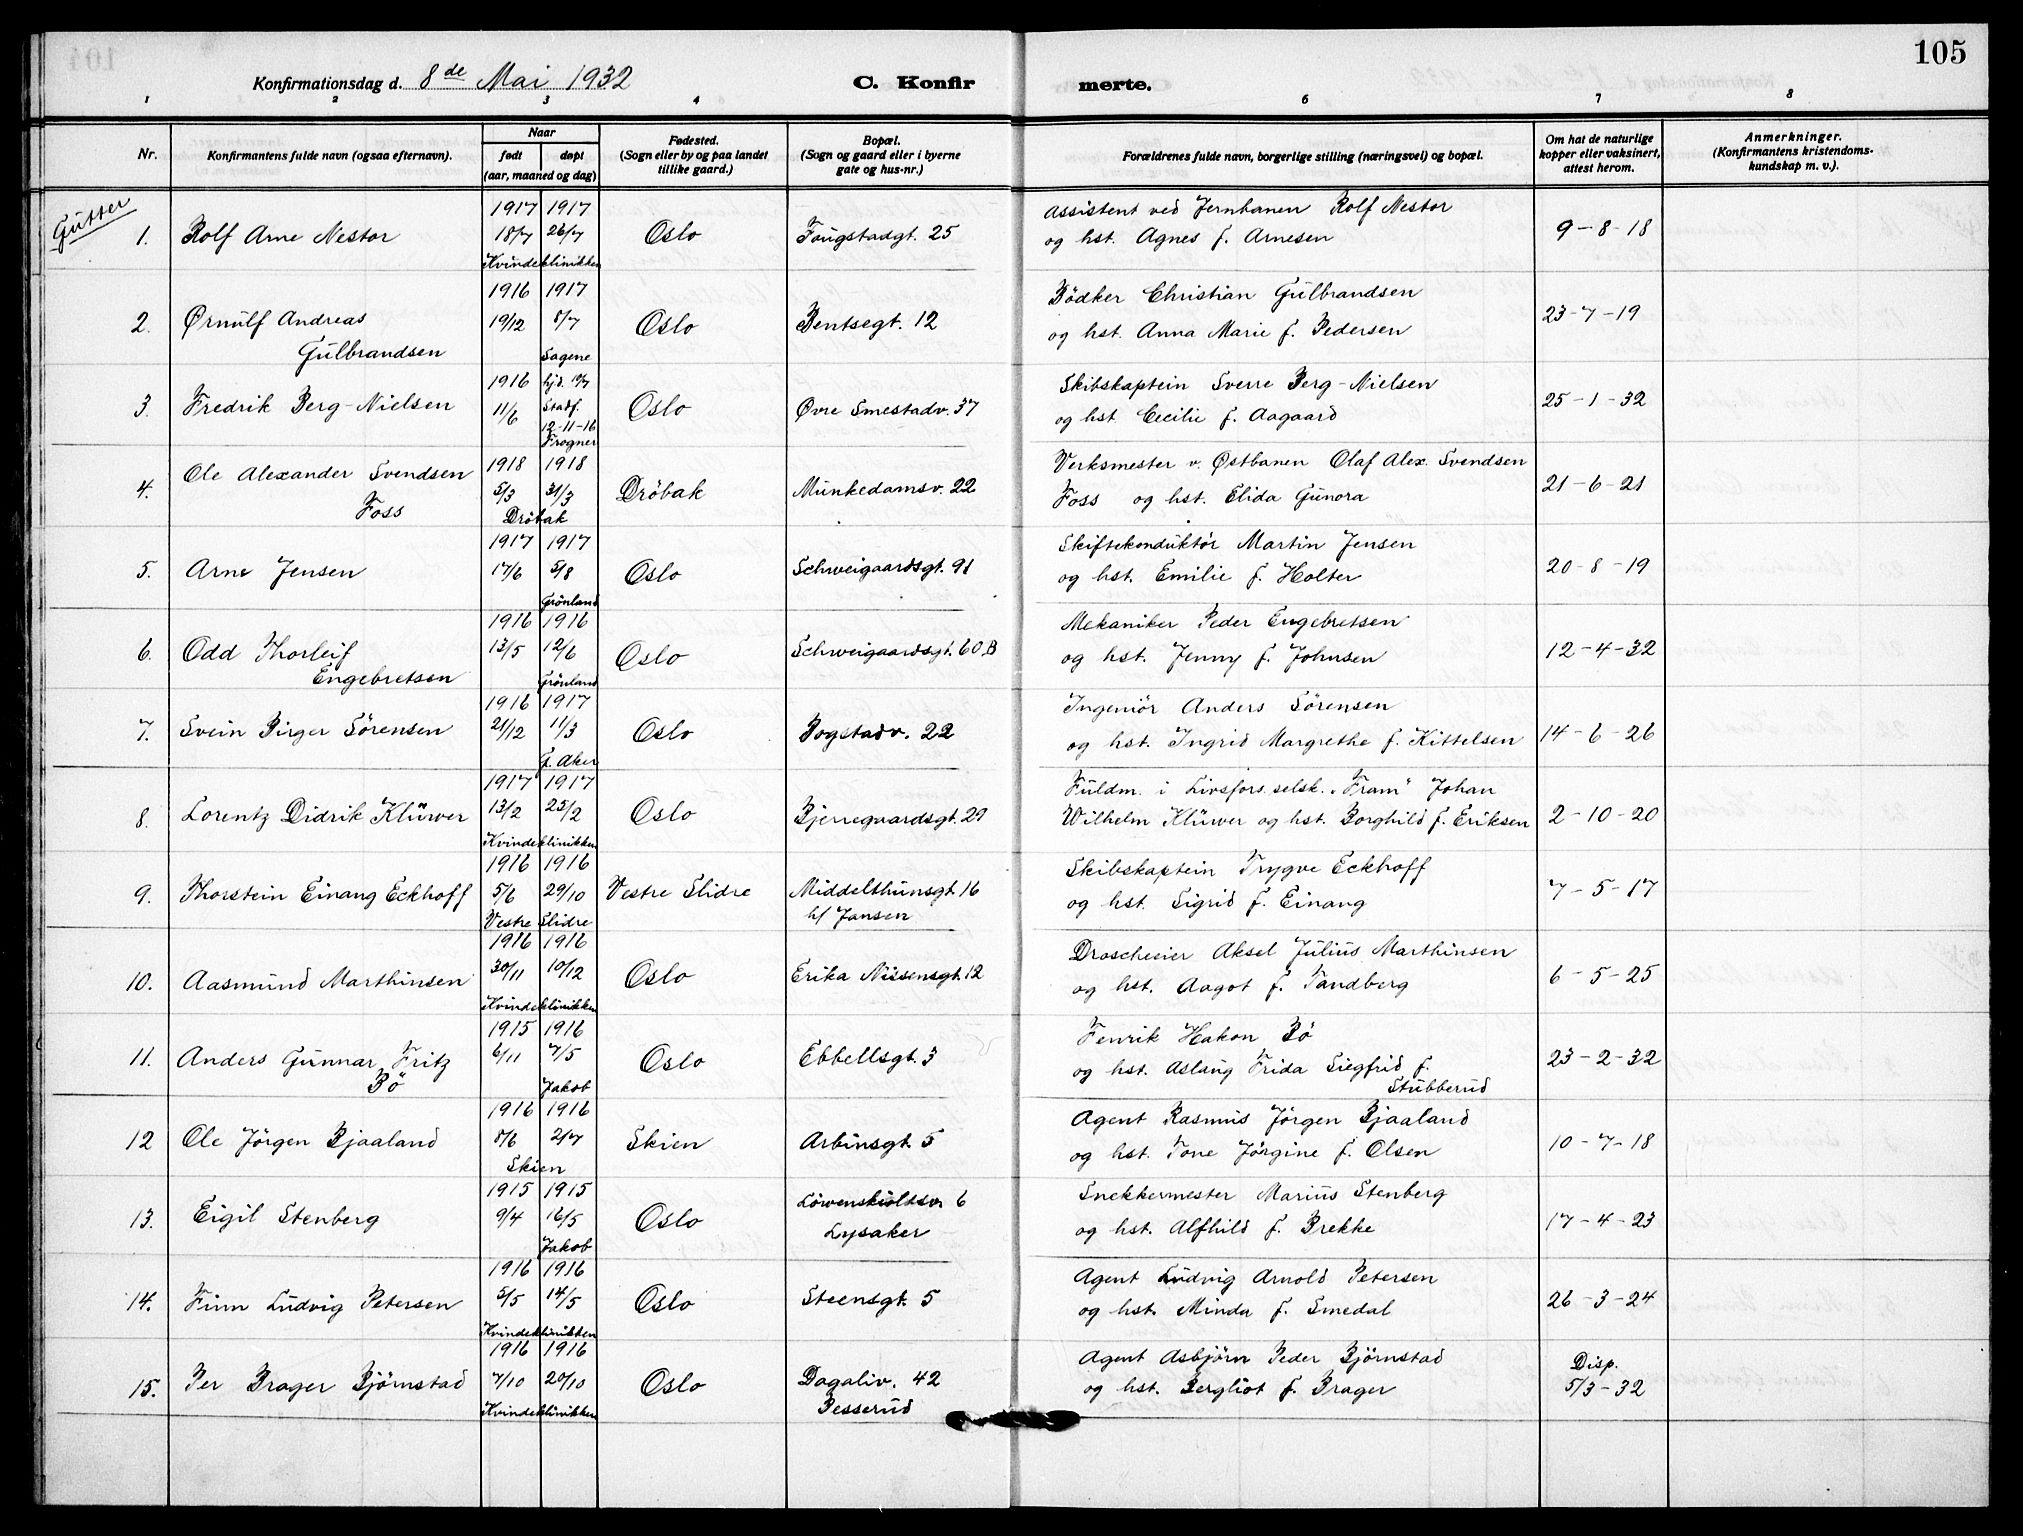 105
Konfirmationsdag d. 8de Mai 1932 C. Konfir merte.
1 2 3 4 6 7 8
Nr.
Konfirmantens fulde navn (ogsaa efternavn).
Naar
født døpt
(aar, maaned og dag)
Fødested.
(Sogn eller by og paa landet
tillike gaard.)
Bopæl.
(Sogn og gaard eller i byerne
gate og hus-nr.)
Forældrenes fulde navn, borgerlige stilling (næringsvei) og bopæl.
Om hat de naturlige
kopper eller vaksinert,
attest herom.
Anmerkninger.
(Konfirmantens kristendoms-
kundskap m. v.).
Gutter
1917 1917 Assistent ved Jernbanen Rolf Nestor
1. Rolf Arne Nestor 18/7 26/7 Oslo Fougstadgt. 25 og hst. Agnes f. Arnesen 9-8-18
Kvindeklinikken
1916 1917 Bödker Christian Gulbrandsen
2. Ørnulf Andreas 19/12 8/7 Oslo Bentsegt. 12 og hst. Anna Marie f. Pedersen 23-7-19
Gulbrandsen Sagene
1916 hjd. 19/7 Skibskaptein Sverre Berg-Nielsen
3. Fredrik Berg-Nielsen 11/6 Stadf. Oslo Øvre Smestadv. 37 og hst Cecilie f. Aagaard 25-1-32
12-11-16
Frogner
4. Ole Alexander Svendsen 1918 1918 Verksmester v. Østbanen Olaf Alex. Svendsen
Foss 5/3 31/3 Dröbak Munkedamsv. 22 Foss og hst. Elida Gunora 21-6-21
Dröbak
1917 1917 Skiftekonduktör Martin Jensen
5. Arne Jensen 17/6 5/8 Oslo Schweigaardsgt. 91 og hst. Emilie f. Holter 20-8-19
Grönland
1916 1916 Mekaniker Peder Engebretsen
6. Odd Thorleif 13/5 12/6 Oslo Schweigaardsgt. 60,B og hst. Jenny f. Johnsen 12-4-32
Engebretsen Grönland
1916 1917 Ingeniör Anders Sörensen
7. Svein Birger Sörensen 21/12 11/3 Oslo Bogstadv. 22 og hst. Ingrid Margrethe f. Kittelsen 14-6-26
G. Aker
1917 1917 Fuldm. i Livsfors.selsk. "Fram" Johan
8. Lorentz Didrik Klüwer 13/2 25/2 Oslo Bjerregaardsgt. 29 Wilhelm Klüwer og hst. Borghild f. Eriksen 2-10-20
Kvindeklinikken
1916 1916 Skibskaptein Trygve Eckhoff
9. Thorstein Einang Eckhoff 5/6 29/10 Vestre Slidre Middelthunsgt 16 og hst. Sigrid f. Einang 7-5-17
Vestre Slidre h/ Jansen
1916 1916 Droscheeier Aksel Julius Marthinsen
10. Aasmund Marthinsen 30/11 10/12 Oslo Erika Nissensgt. 12 og hst. Aagot f. Tandberg 6-5-25
Kvindeklinikken
1915 1916 Fenrik Hakon Bö
11. Anders Gunnar Fritz 6/11 7/5 Oslo Ebbellsgt. 3 og hst. Aslaug Frida Siegfrid f. 23-2-32
Bö Jakob Stubberud
1916 1916 Agent Rasmus Jörgen Bjaaland
12 Ole Jörgen Bjaaland 8/6 2/7 Skien Arbinsgt. 5 og hst. Tone Jörgine f. Olsen 10-7-18
Skien
1915 1915 Snekkermester Marius Stenberg
13. Eigil Stenberg 9/4 16/5 Oslo Löwenskioldsv. 6 og hst. Alfhild f. Brekke 17-4-23
Jakob Lysaker
1916 1916 Agent Ludvig Arnold Petersen
14. Finn Ludvig Petersen 5/5 14/5 Oslo Steensgt. 5 og hst. Minda f. Smedal 26-3-24
Kvindeklinikken
1916 1916 Agent Asbjörn Peder Björnstad Disp.
15. Per Brager Björnstad 7/10 20/10 Oslo Dagaliv. 42 og hst. Bergliot f. Brager 5/3-32
Kvindeklinikken Besserud